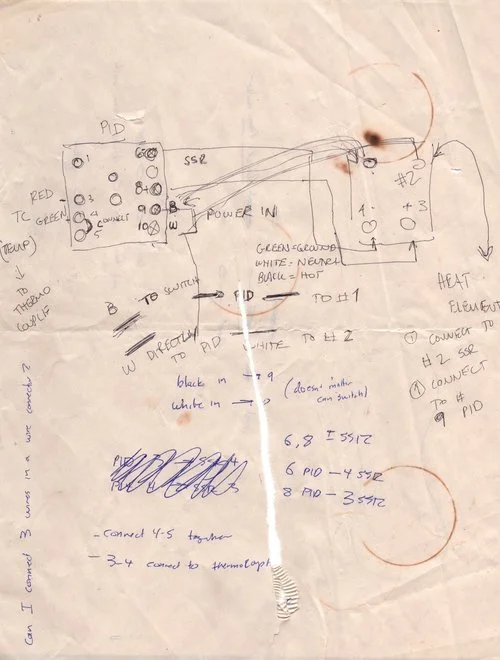 PID
SSR
1
6
8
9 B
10 W
RED
3
TC
GREEN
4
CONNECT
5
(TEMP)
TO
THERMO
COUPLE
POWER IN
#2
4 -
+ 3
GREEN = GROUND
WHITE = NEUTRAL
BLACK = HOT
B TO SWITCH → PID — TO #1
W DIRECTLY TO PID WHITE TO #2
HEAT
ELEMENT
① CONNECT TO
#2 SSR
① CONNECT
TO #
9 PID
black in → 9
white in →
(doesn't matter
can switch)
6,8 I SSR
6 PID - 4 SSR
8 PID - 3 SSR
- connect 4-5 together
- 3-4 connect to thermo
Can I connect 3 wires in a wire connector?